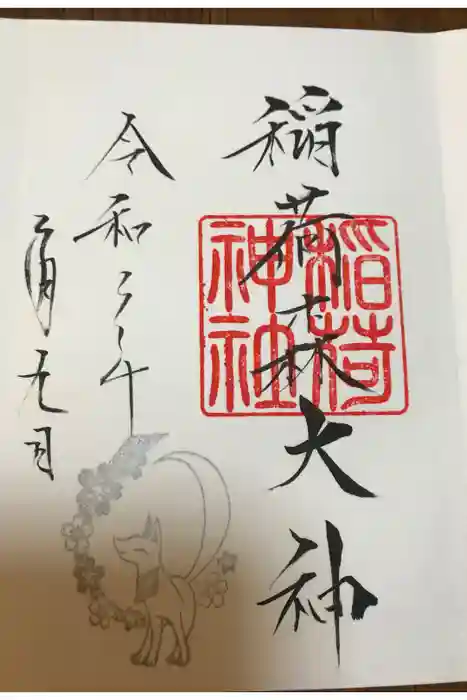 稲荷森大神
稲荷
神社
令和三年
二月九日